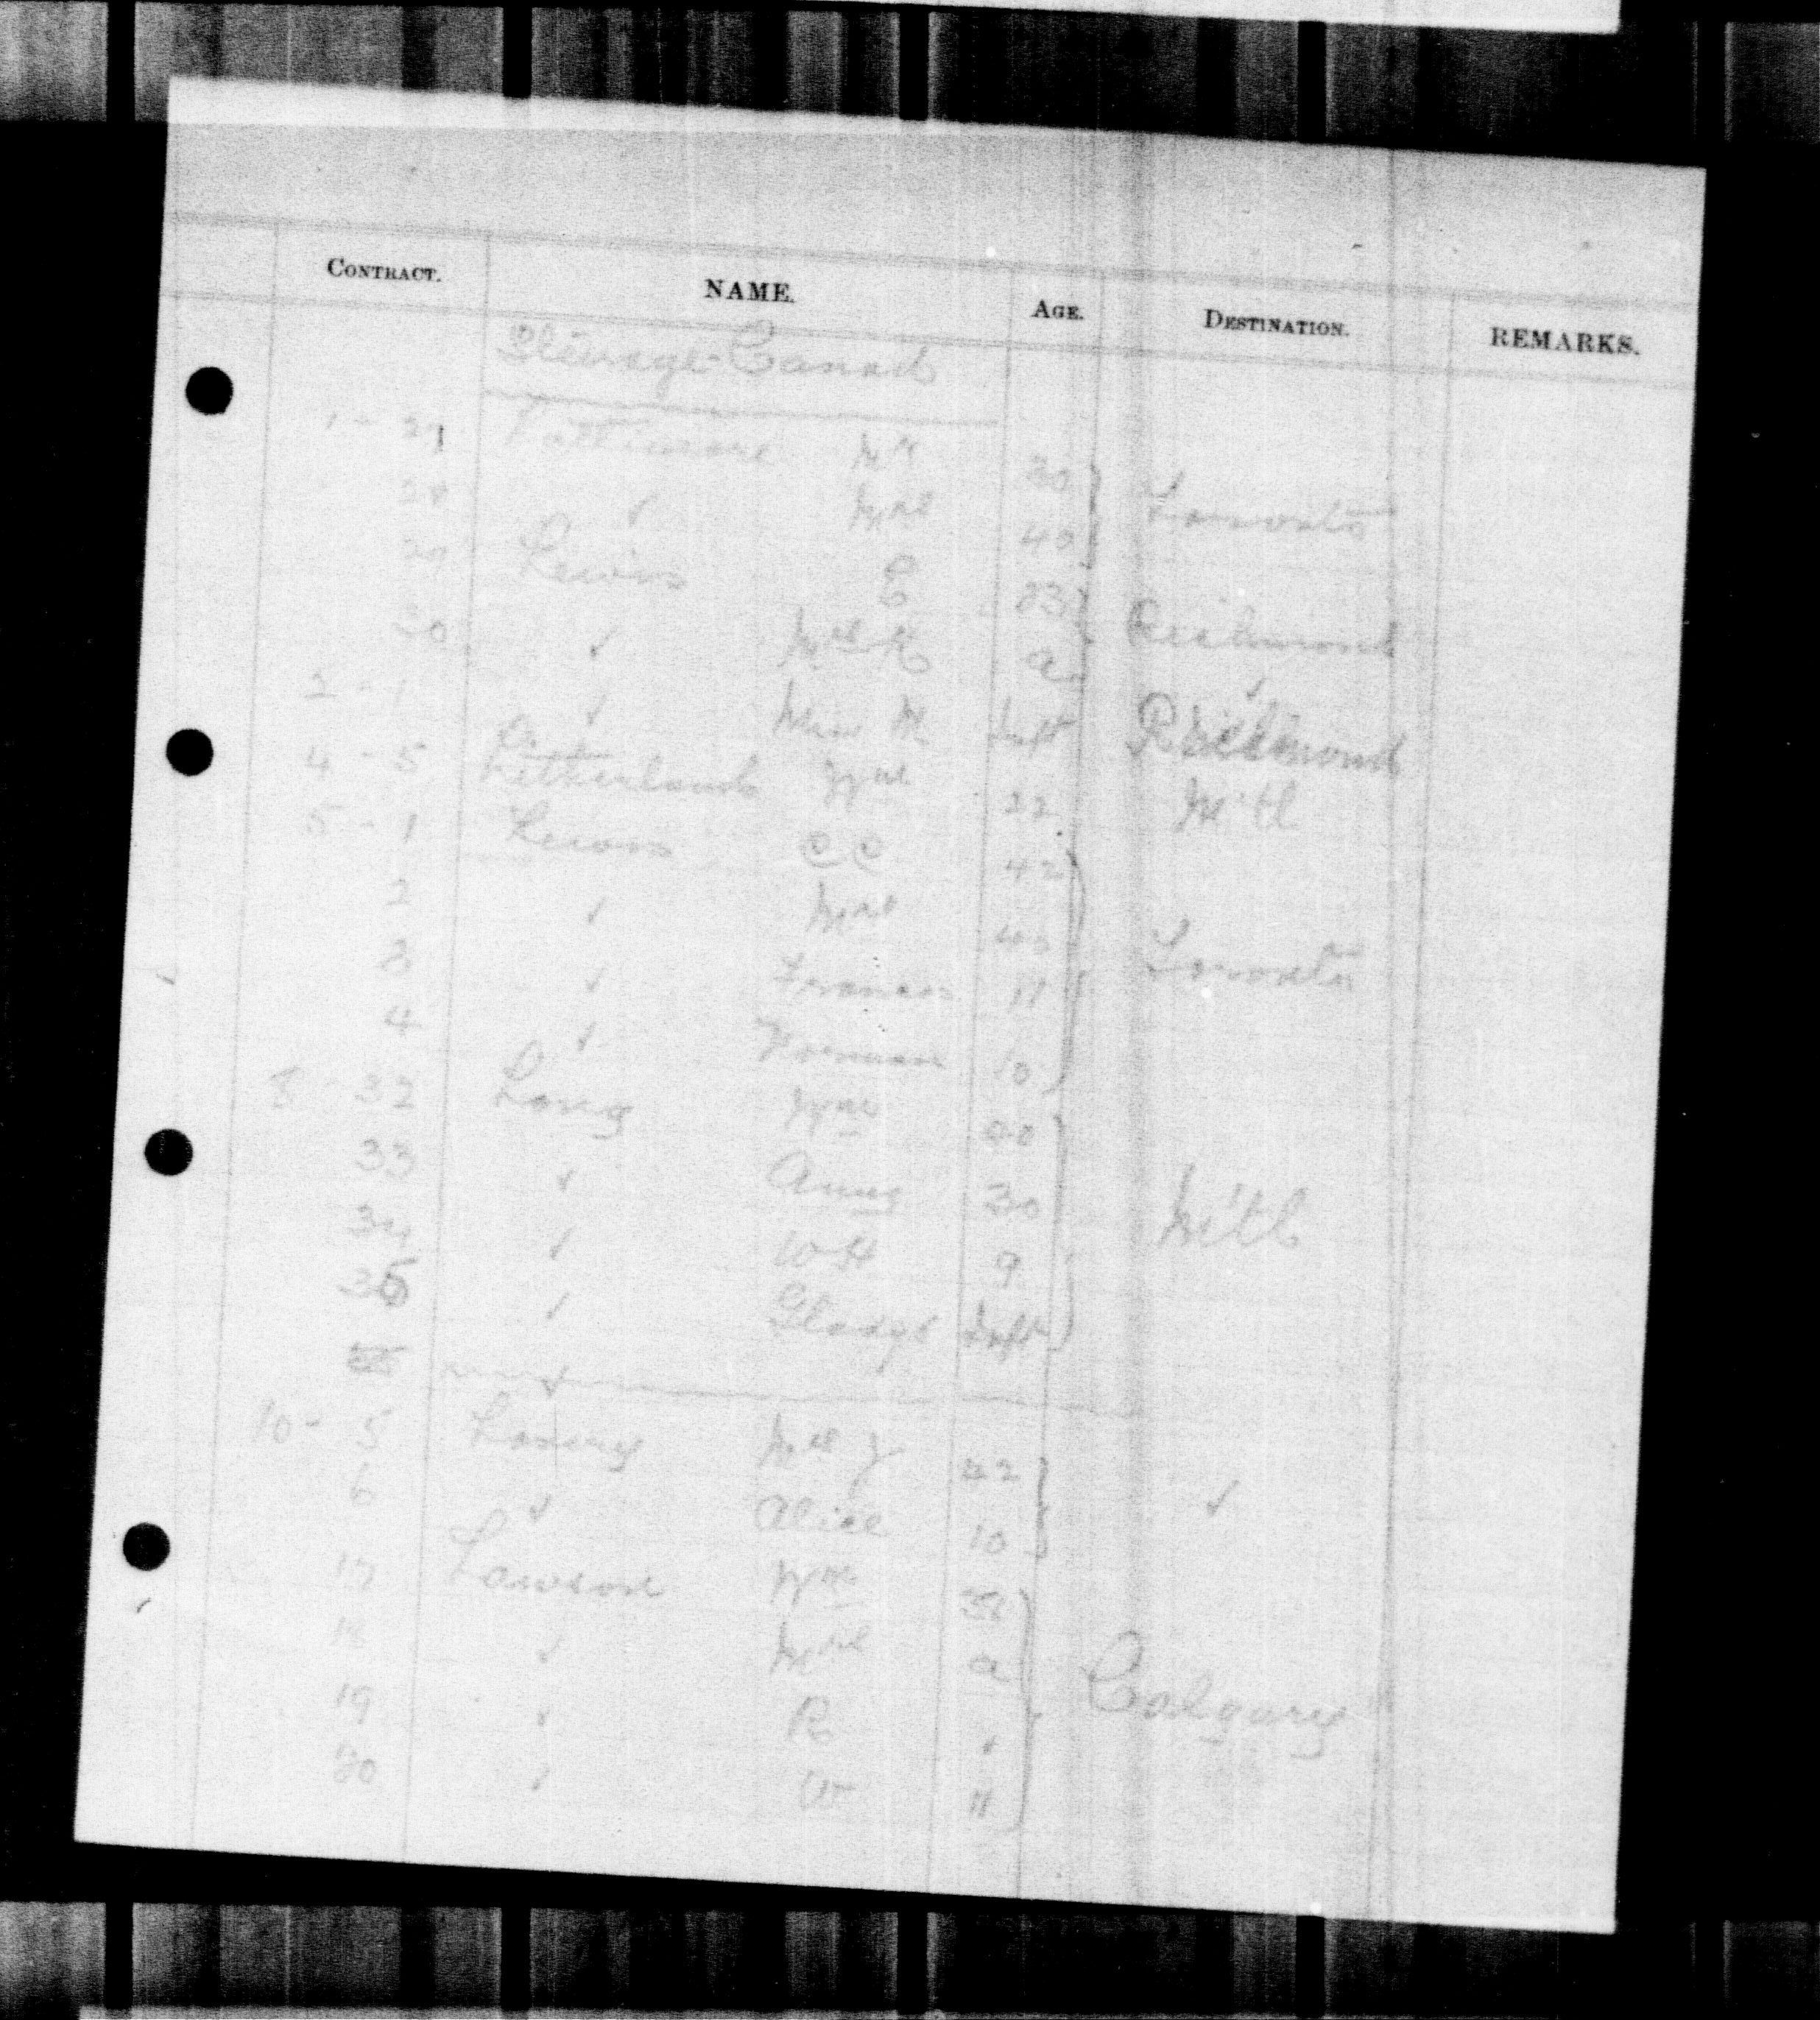 CONTRACT. NAME. AGE. DESTINATION. REMARKS.
Steerage Canad
1 - 27 Lattimore Mr 30
28 ✓ Mrs 40 Toronto
29 Lewis E 23
30 ✓ Mrs K a Richmond
2 - 1 ✓ Miss M Inft Richmond
4 - 5 Litherland Wm 22 M'tl
5 - 1 Lewis CC 42
2 ✓ Mrs 40 Toronto
3 ✓ Frances 11
4 ✓ Norman 10
8 32 Long Wm
33 ✓ Annie 30 M'tl
34 ✓ WH 9
35 ✓ Gladys Inft
10 - 5 Mrs J 42 ✓
6 ✓ Alice 10
17 Lawson Wm
18 ✓ Mrs a Calgary
19 ✓ R ✓
20 ✓ 11